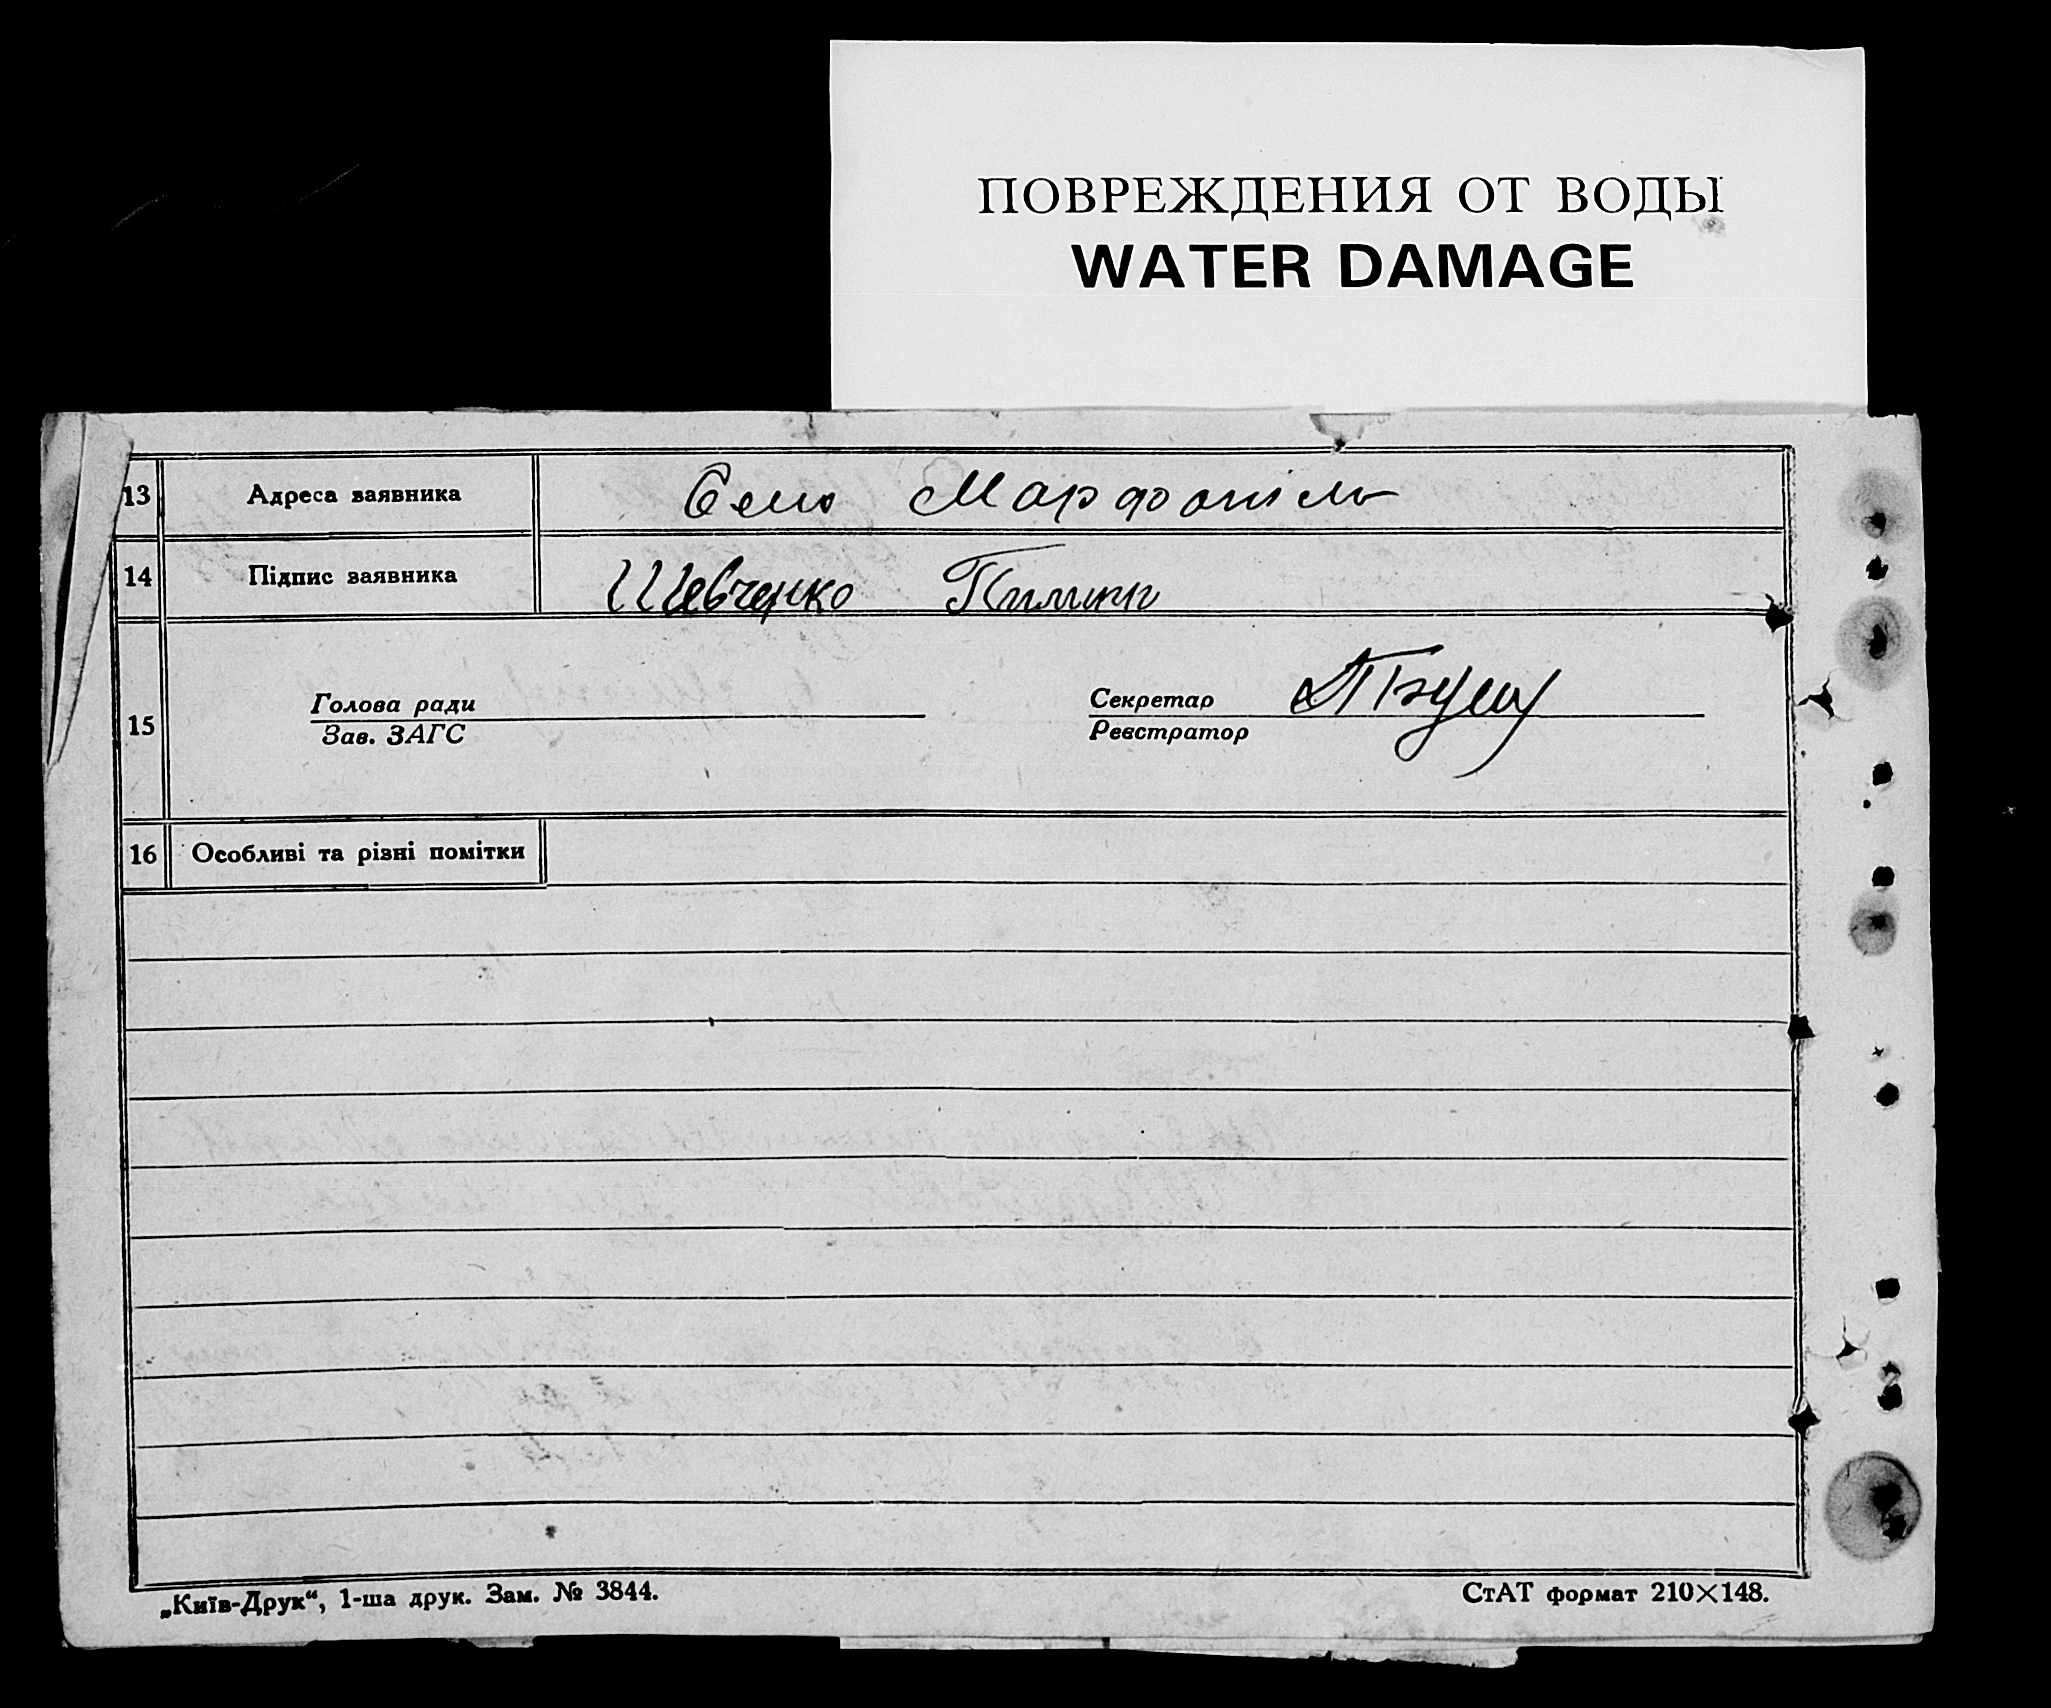 ПОВРЕЖДЕНИЯ ОТ ВОДЫ
WATER DAMAGE
13 Адреса заявника Село Марфопіль
14 Підпис заявника Шевченко Пилип
15 Голова ради Секретар
Зав. ЗАГС Реєстратор
16 Особливі та різні помітки
„Київ-Друк“, 1-ша друк. Зам. № 3844. СтАТ формат 210×148.